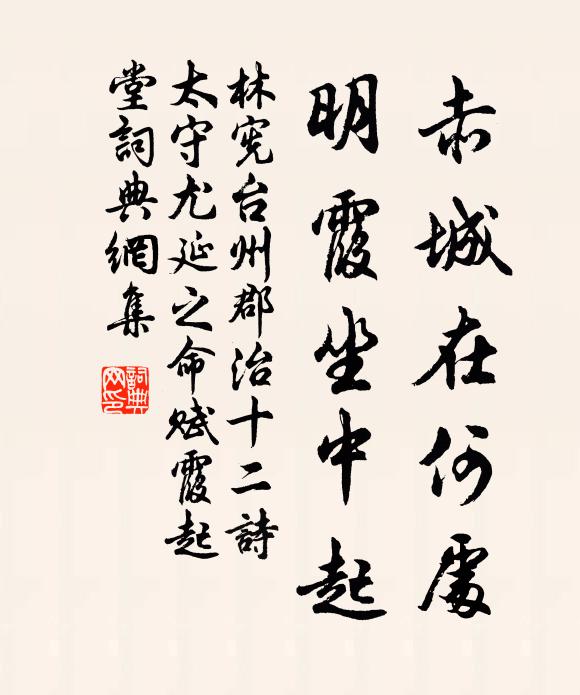 赤城在何處
明霞坐中起
林宪台州郡治十二詩
太守尤延之命赋霞起
堂詞典網集
詞典網印